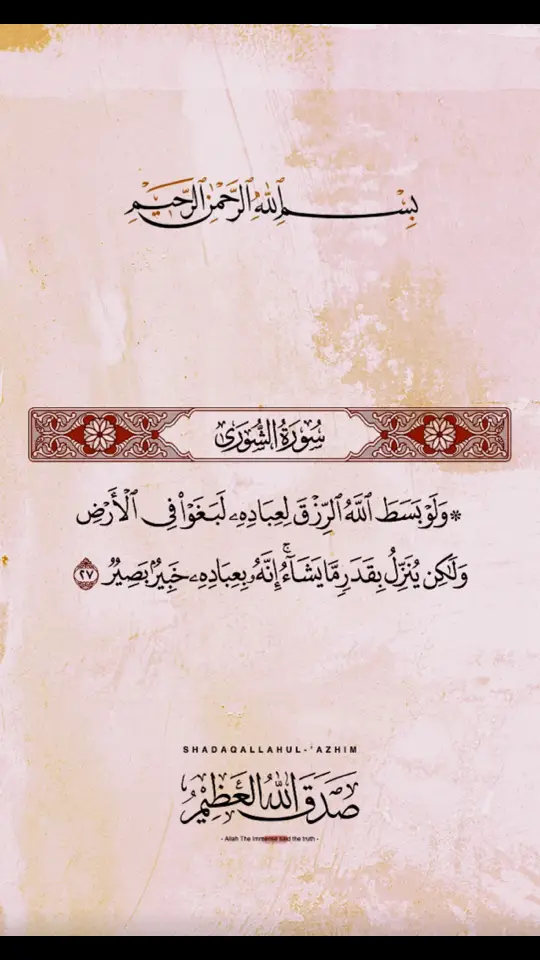 بِسْمِ اللَّهِ الرَّحْمَٰنِ الرَّحِيمِ
سُورَةُ الشُّورَىٰ
* وَلَوْ بَسَطَ ٱللَّهُ ٱلرِّزْقَ لِعِبَادِهِۦ لَبَغَوْا۟ فِى ٱلْأَرْضِ
وَلَـٰكِن يُنَزِّلُ بِقَدَرٍ مَّا يَشَآءُ ۚ إِنَّهُۥ بِعِبَادِهِۦ خَبِيرٌۢ بَصِيرٌ ٢٧
SHADAQALLAHUL-'AZHIM
صَدَقَ اللهُ العَظِيْمُ
- Allah The Immense said the truth -